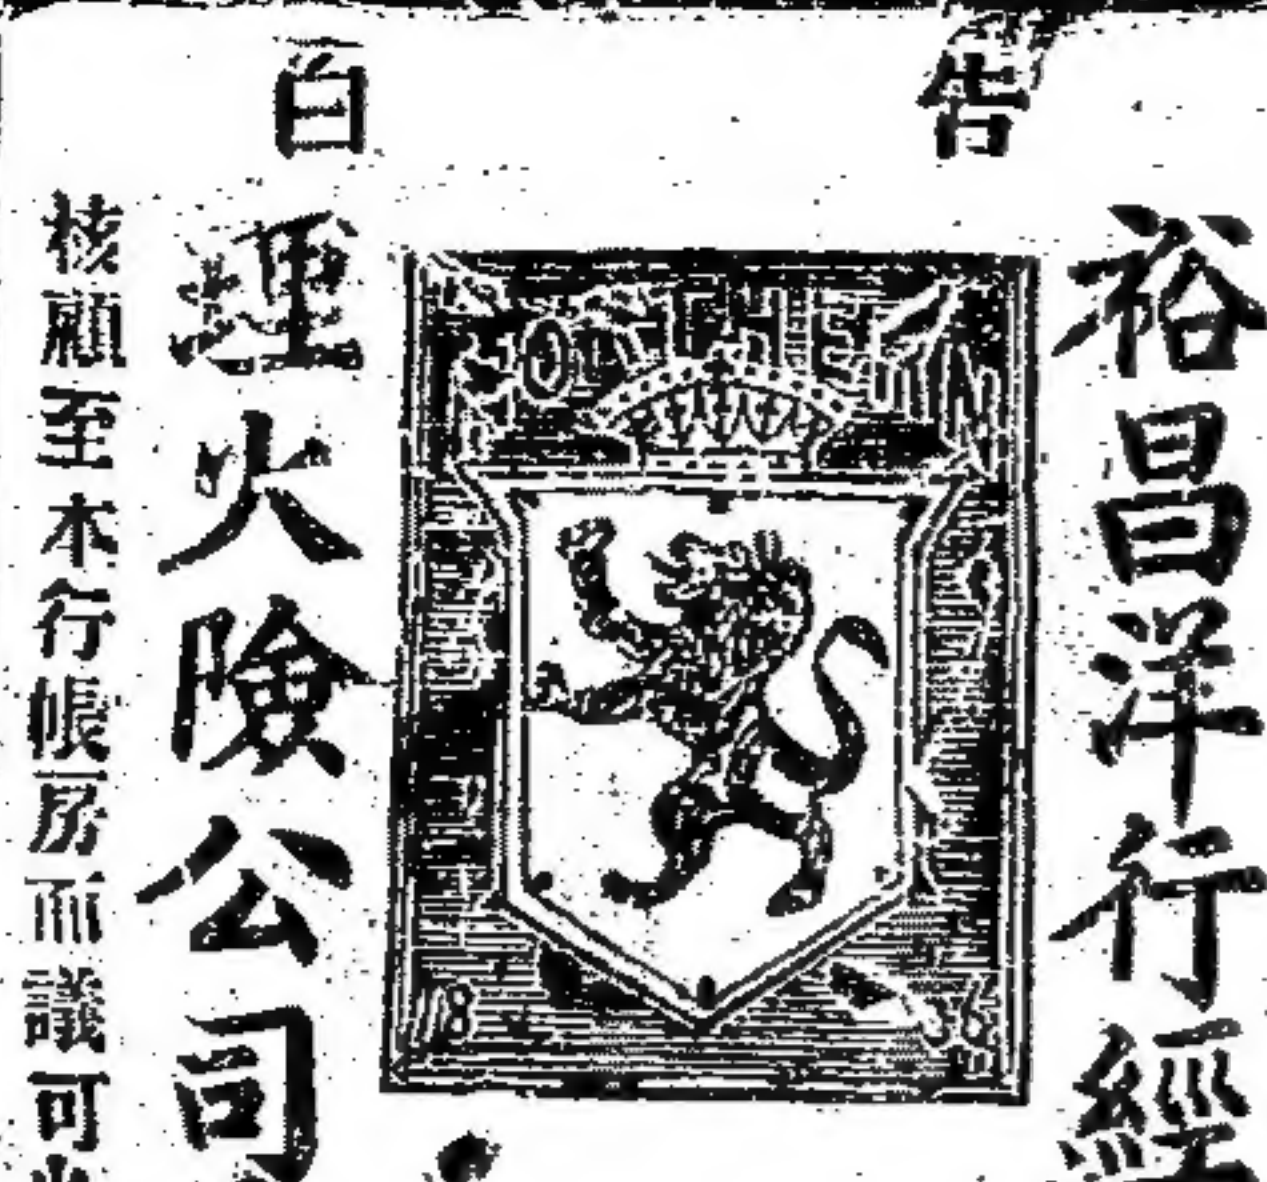 告白
裕昌洋行經
NORTHERN
18
36
理火險公司
核顧至本行帳房而議可也